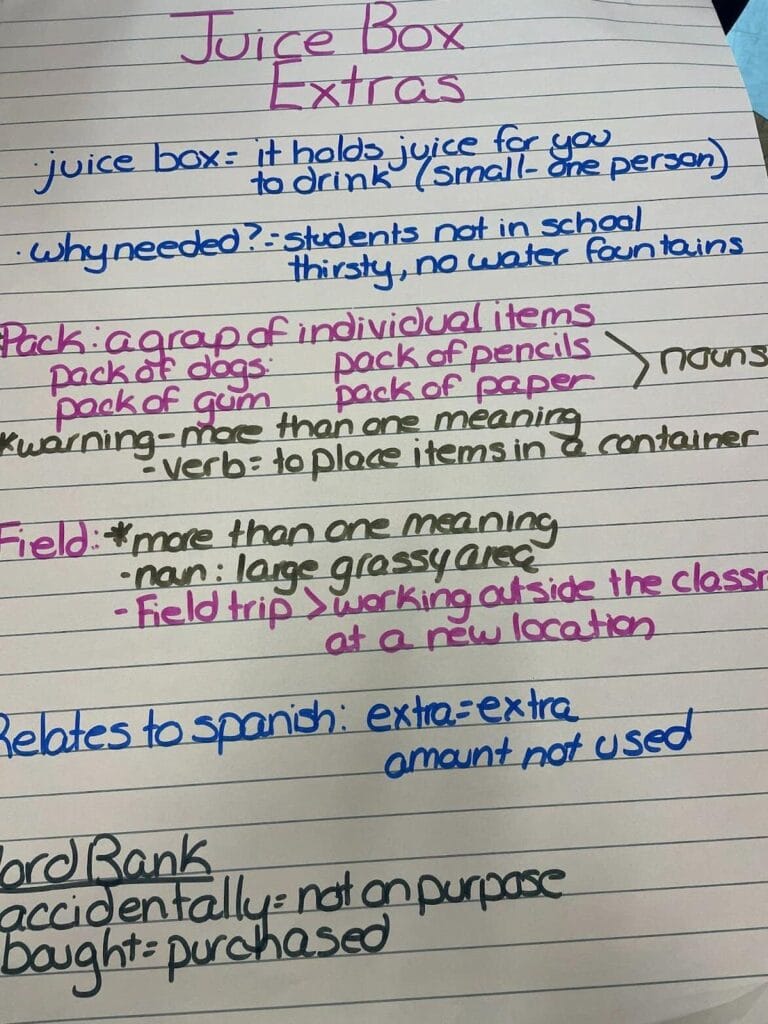 Juice Box
Extras
·juice box= it holds juice for you
to drink (small- one person)
·why needed?=students not in school
thirsty, no water fountains
Pack: a grap of individual items
pack of dogs. pack of pencils > nouns
pack of gum pack of paper
*warning-more than one meaning
-verb= to place items in a container
Field: *more than one meaning
-noun: large grassy area
- Field trip > working outside the classr
at a new location
Relates to spanish: extra=extra
amount not used
ord Bank
accidentally= not on purpose
bought= purchased